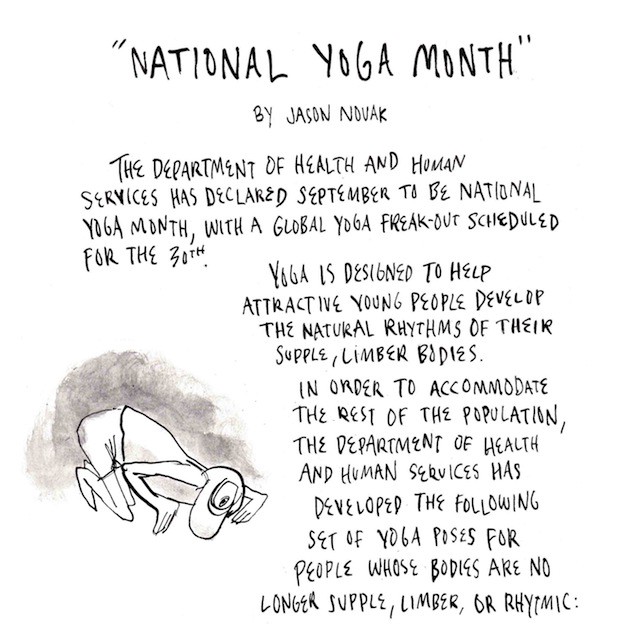 "NATIONAL YOGA MONTH"
BY JASON NOVAK
THE DEPARTMENT OF HEALTH AND HUMAN
SERVICES HAS DECLARED SEPTEMBER TO BE NATIONAL
YOGA MONTH, WITH A GLOBAL YOGA FREAK-OUT SCHEDULED
FOR THE 30TH.
YOGA IS DESIGNED TO HELP
ATTRACTIVE YOUNG PEOPLE DEVELOP
THE NATURAL RHYTHMS OF THEIR
SUPPLE, LIMBER BODIES.
IN ORDER TO ACCOMMODATE
THE REST OF THE POPULATION,
THE DEPARTMENT OF HEALTH
AND HUMAN SERVICES HAS
DEVELOPED THE FOLLOWING
SET OF YOGA POSES FOR
PEOPLE WHOSE BODIES ARE NO
LONGER SUPPLE, LIMBER, OR RHYTMIC: